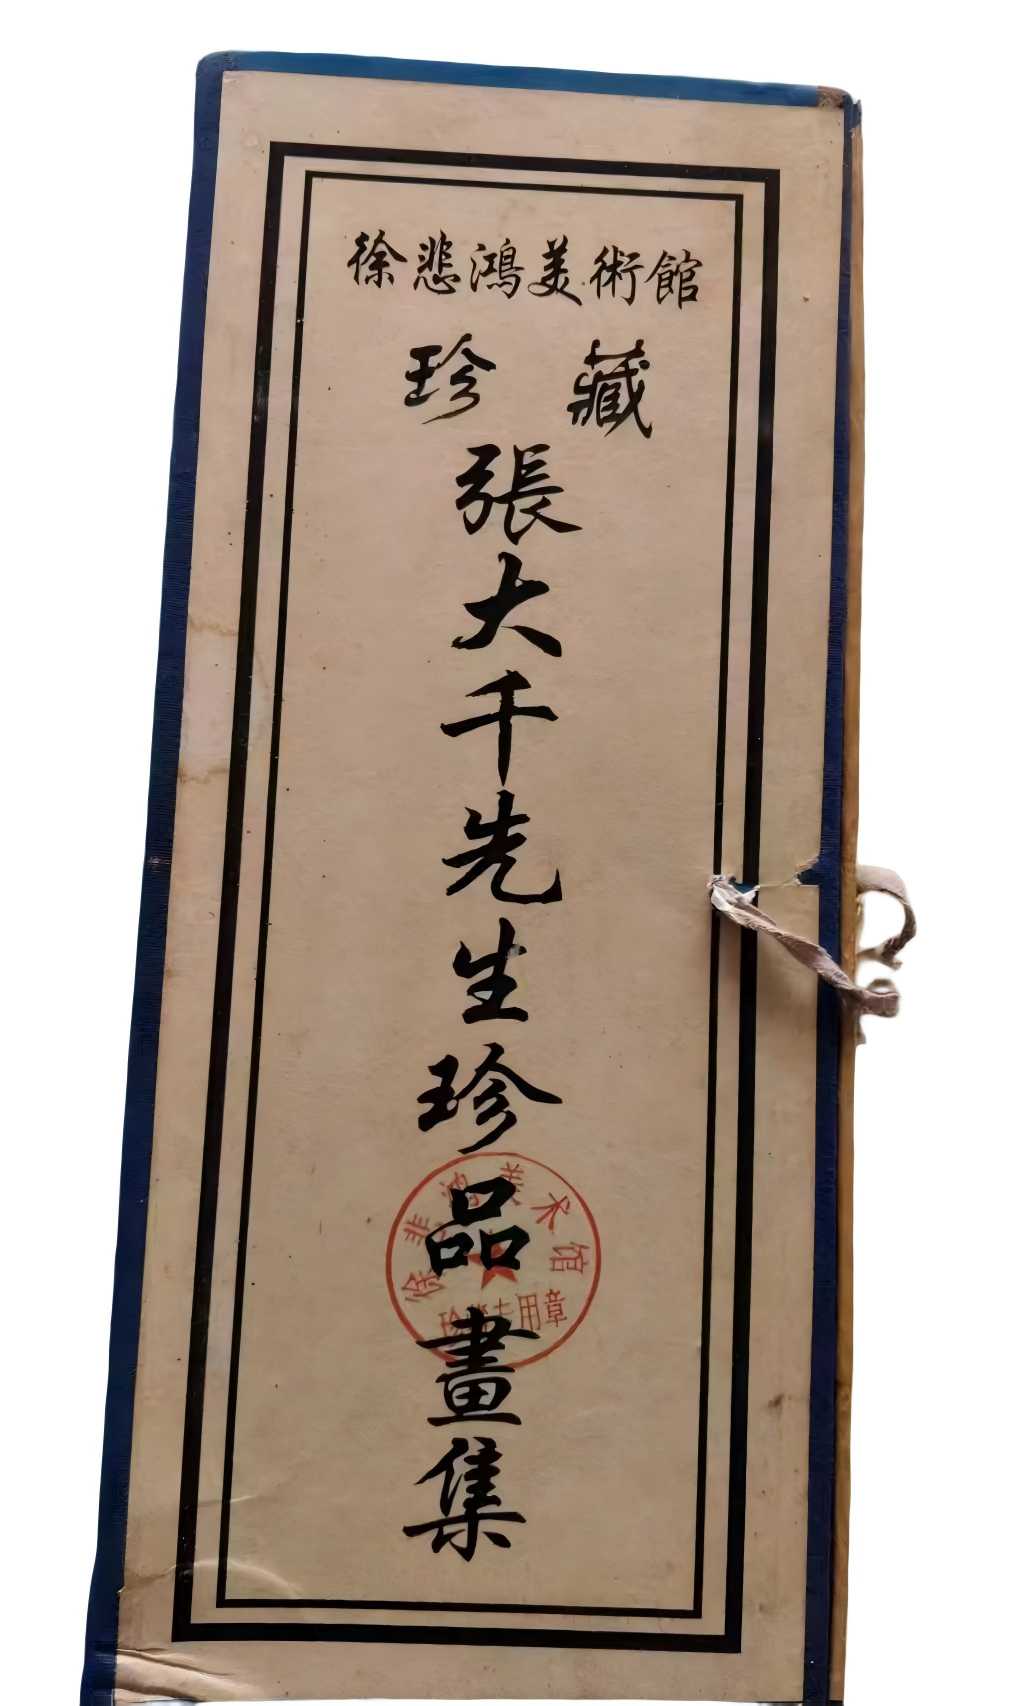 徐悲鴻美術館
珍藏
張大千先生珍品畫集
徐悲鸿美术馆
珍藏专用章